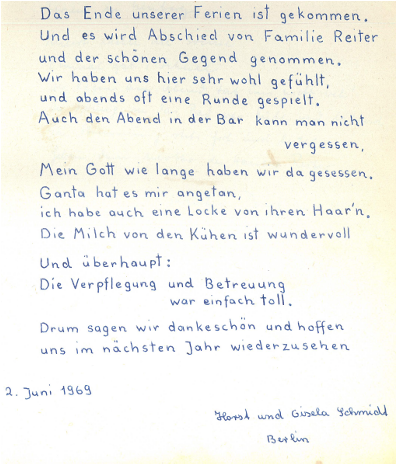 Das Ende unserer Ferien ist gekommen.
Und es wird Abschied von Familie Reiter
und der schönen Gegend genommen.
Wir haben uns hier sehr wohl gefühlt,
und abends oft eine Runde gespielt.
Auch den Abend in der Bar kann man nicht
vergessen,
Mein Gott wie lange haben wir da gesessen.
Ganta hat es mir angetan,
ich habe auch eine Locke von ihren Haar'n.
Die Milch von den Kühen ist wundervoll
Und überhaupt:
Die Verpflegung und Betreuung
war einfach toll.
Drum sagen wir dankeschön und hoffen
uns im nächsten Jahr wiederzusehen
2. Juni 1969
Horst und Gisela Schmidt
Berlin